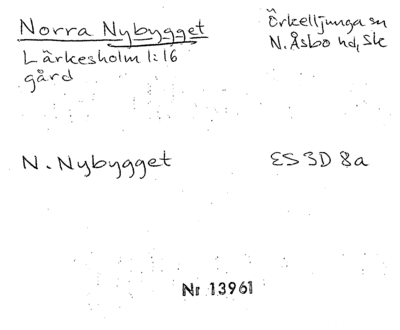 Norra Nybygget
Örkelljunga sn
Lärkesholm 1:16
N. Åsbo hd, Sk
gård
N. Nybygget
ES 3D 8a
Nr 13961